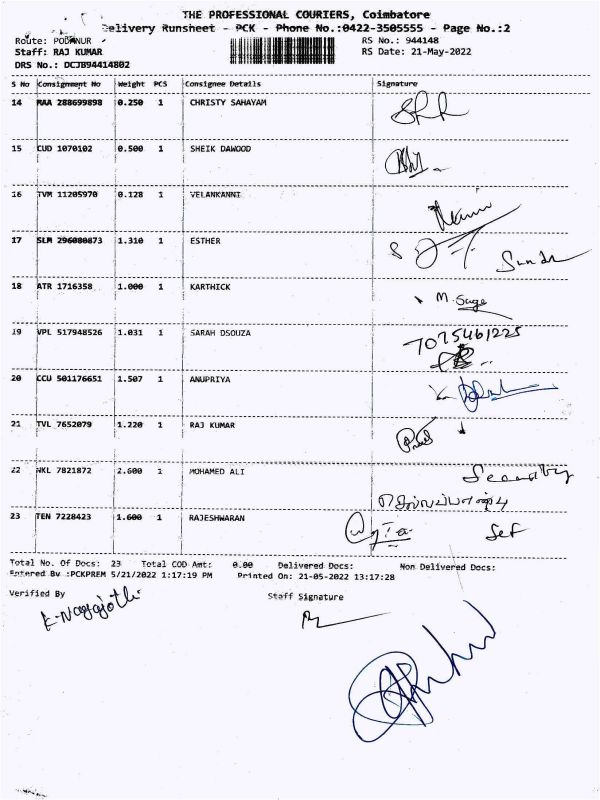 THE PROFESSIONAL COURIERS, Coimbatore
Delivery Runsheet - PCK - Phone No.:0422-3505555 - Page No.:2
Route: PODANUR RS No.: 944148
Staff: RAJ KUMAR RS Date: 21-May-2022
DRS No.: DCJB94414802
S No Consignment No Weight PCS Consignee Details Signature
14 MAA 288699898 0.250 1 CHRISTY SAHAYAM
15 CUD 1070102 0.500 1 SHEIK DAWOOD
16 TVM 11205970 0.128 1 VELANKANNI
17 SLM 296080873 1.310 1 ESTHER
18 ATR 1716358 1.000 1 KARTHICK
19 VPL 517948526 1.031 1 SARAH DSOUZA
20 CCU 501176651 1.507 1 ANUPRIYA
21 TVL 7652079 1.220 1 RAJ KUMAR
22 NKL 7821872 2.600 1 MOHAMED ALI
23 TEN 7228423 1.600 1 RAJESHWARAN
Total No. Of Docs: 23 Total COD Amt: 0.00 Delivered Docs: Non Delivered Docs:
Entered By :PCKPREM 5/21/2022 1:17:19 PM Printed On: 21-05-2022 13:17:28
Verified By Staff Signature
K-Nagajothi